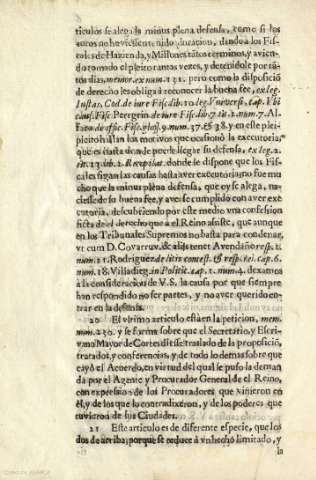 ticulos se alega la minus plena defensa, como si los
autos no huviessen tenido duracion, dando à los Fis-
cales de Hazienda, y Millones tãtos terminos, y avien-
do tomado el pleito tantas vezes, y detenidole por tã-
tos dias, memor. ex num. 131. pero como la disposició
de derecho les obliga à reconocer la buena fee, ex leg.
Instas, Cod. de iure Fisc. lib. 10. leg. Vniversa, cap. Vbi
caus. Fisc. Peregrin. de iure Fisc. lib. 7. tit. 2. num. 7. Al-
faro de offic. Fisc. glos. 9. num. 37. & 38. y en este plei-
pleito hasta los motivos que ocasionò la executoria,
que es hasta donde puede llegar su defensa, ex leg. 2.
tit. 13. lib. 2. Recopilat. donde se dispone que los Fis-
cales sigan las causas hasta aver executoria; no fue mu-
cho que la minus plena defensa, que oy se alega, na-
ciesse de su buena fee, y aver se cumplido con aver exe-
cutoria, descubriendo por este medio vna confession
ficta de el derecho que a el Reino assiste, que aunque
en los Tribunales Supremos no basta para condenar,
vt cum D. Covarruv. & alijs tenet Avendaño resp. 1.
num. 21. Rodriguez de litis contest. & resp. rei. cap. 6.
num. 18. Villadieg. in Politic. cap. 1. num. 4. dexamos
à la consideracion de V. S. la causa por que siempre
han respondido no ser partes, y no aver querido en-
trar en la defensa.
20 El vltimo articulo està en la peticion, mem.
num. 230. y se forma sobre que el Secretario, y Escri-
vano Mayor de Cortes dè traslado de la proposició,
tratados, y conferencias, y de todo lo demas sobre que
cayò el Acuerdo, en virtud del qual se puso la deman
da por el Agente y Procurador General de el Reino,
con expression de los Procuradores que vinieron en
èl, y de los que lo contradixeron, y de los poderes que
tuvieron de sus Ciudades.
21 Este articulo es de diferente especie, que los
dos de arriba, porque se reduce à vn hecho limitado, y
la